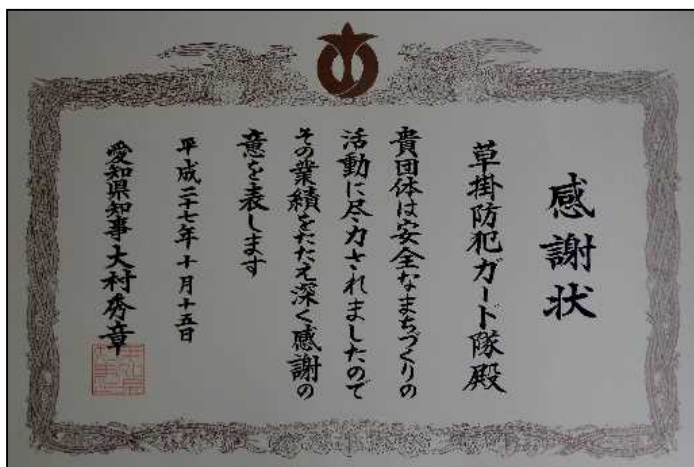 感謝状
草掛防犯ガード隊殿
貴団体は安全なまちづくりの
活動に尽力されましたので
その業績をたたえ深く感謝の
意を表します
平成二十七年十月十五日
愛知県知事大村秀章